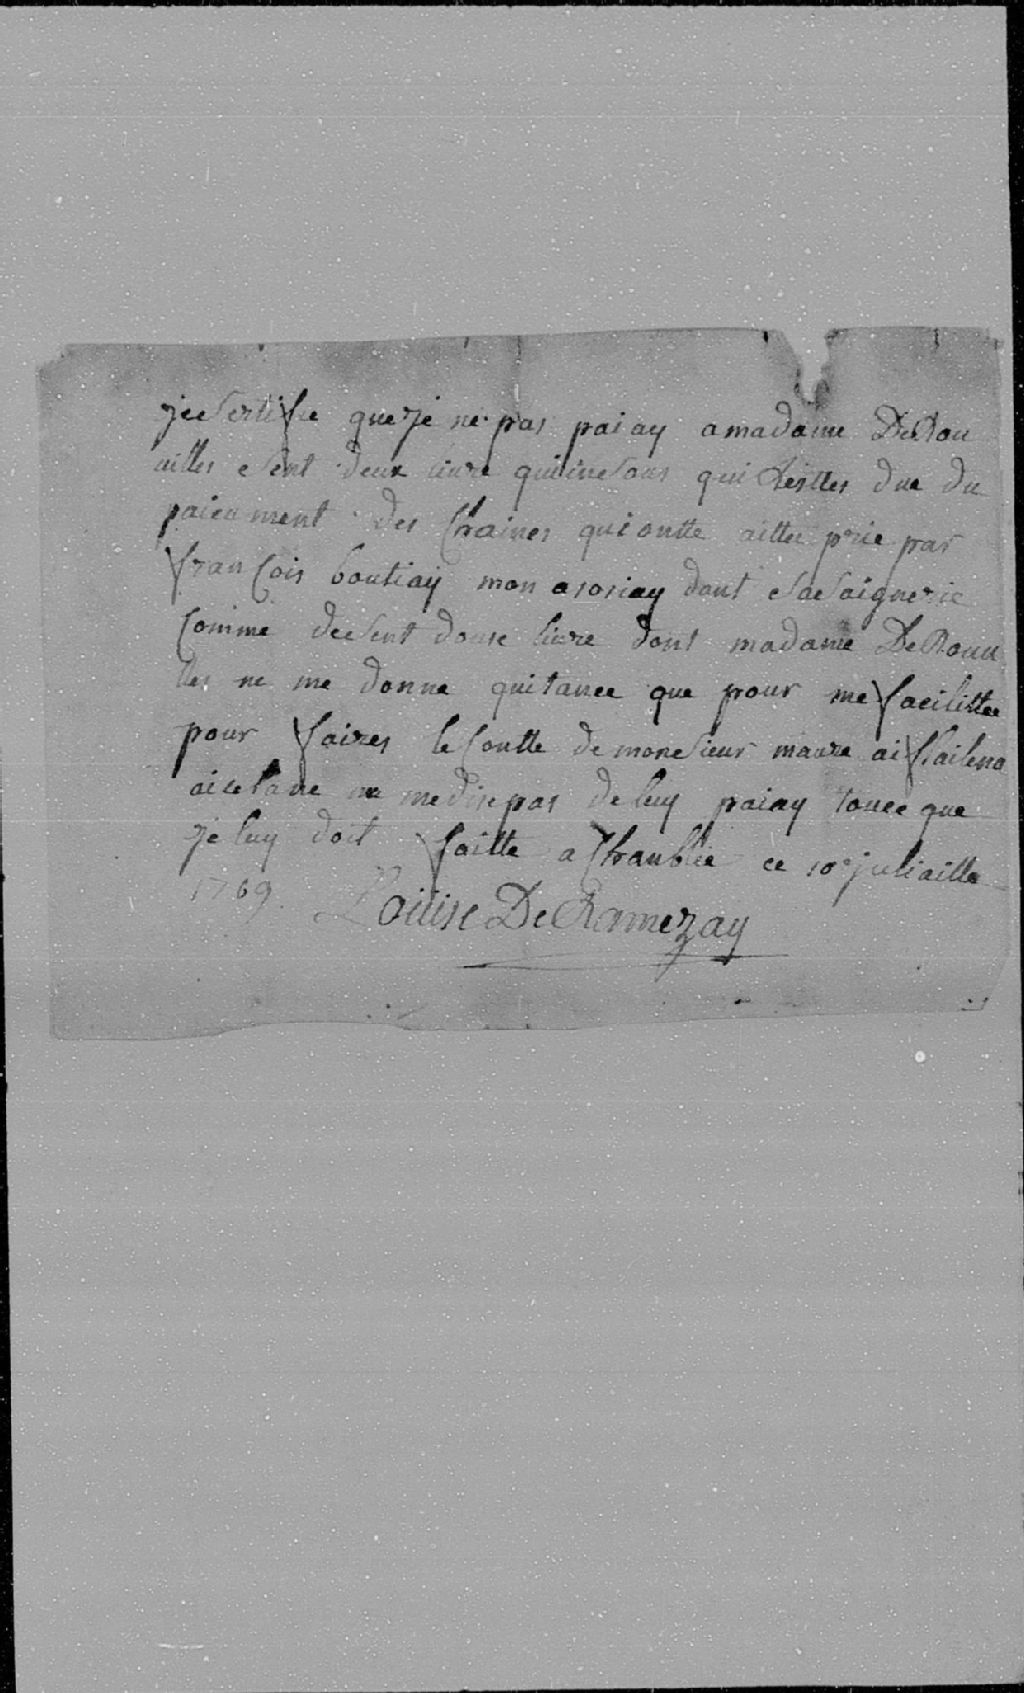 je sertifie que je ne pas paiay a madame De Rou
uilles esent deux livre quinse sous qui lui estes due du
paieument des Chaines qui ontte aittee prie par
francois boutiay mon asosiay dont sa saignerie
comme de sent douse livre dont madame De Rouui
lles ne me donne quitance que pour me facilittee
pour faires le contte de monesieur maure ai
ai cela ne me dise pas de luy paiay touce que
je luy doit faitte a Chamblie ce 10e juliaille
1769. Louise De Ramezay